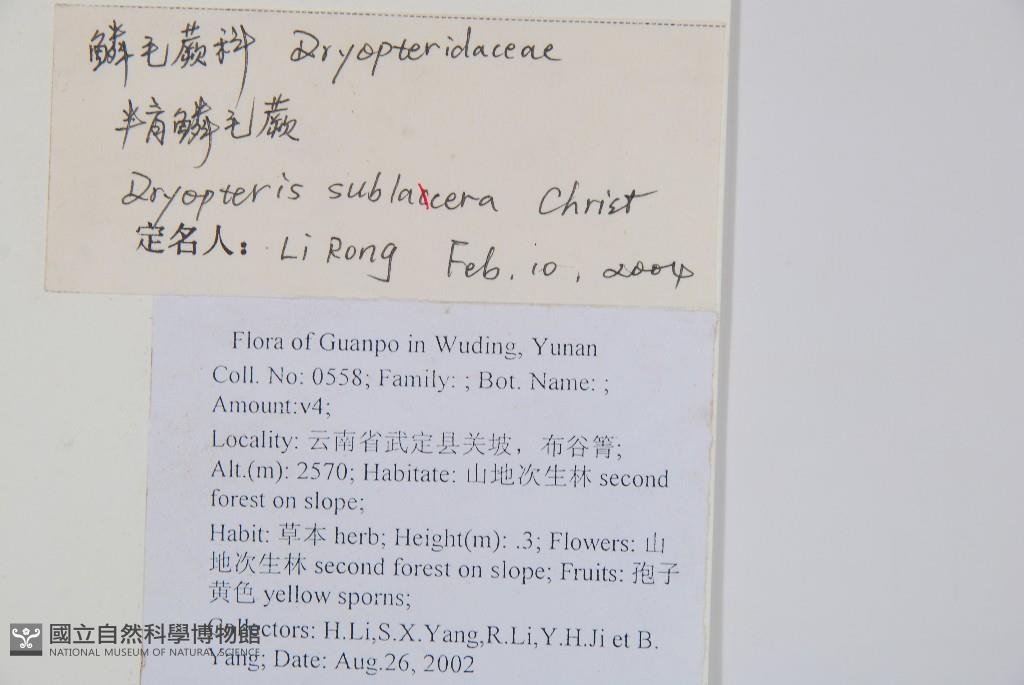 鱗毛蕨科 Dryopteridaceae
半育鱗毛蕨
Dryopteris sublacera Christ
定名人: Li Rong Feb. 10, 2004
Flora of Guanpo in Wuding, Yunan
Coll. No: 0558; Family: ; Bot. Name: ;
Amount:v4;
Locality: 云南省武定县关坡，布谷箐;
Alt.(m): 2570; Habitate: 山地次生林 second
forest on slope;
Habit: 草本 herb; Height(m): .3; Flowers: 山
地次生林 second forest on slope; Fruits: 孢子
黄色 yellow sporns;
Collectors: H.Li,S.X.Yang,R.Li,Y.H.Ji et B.
Yang; Date: Aug.26, 2002
國立自然科學博物館
NATIONAL MUSEUM OF NATURAL SCIENCE